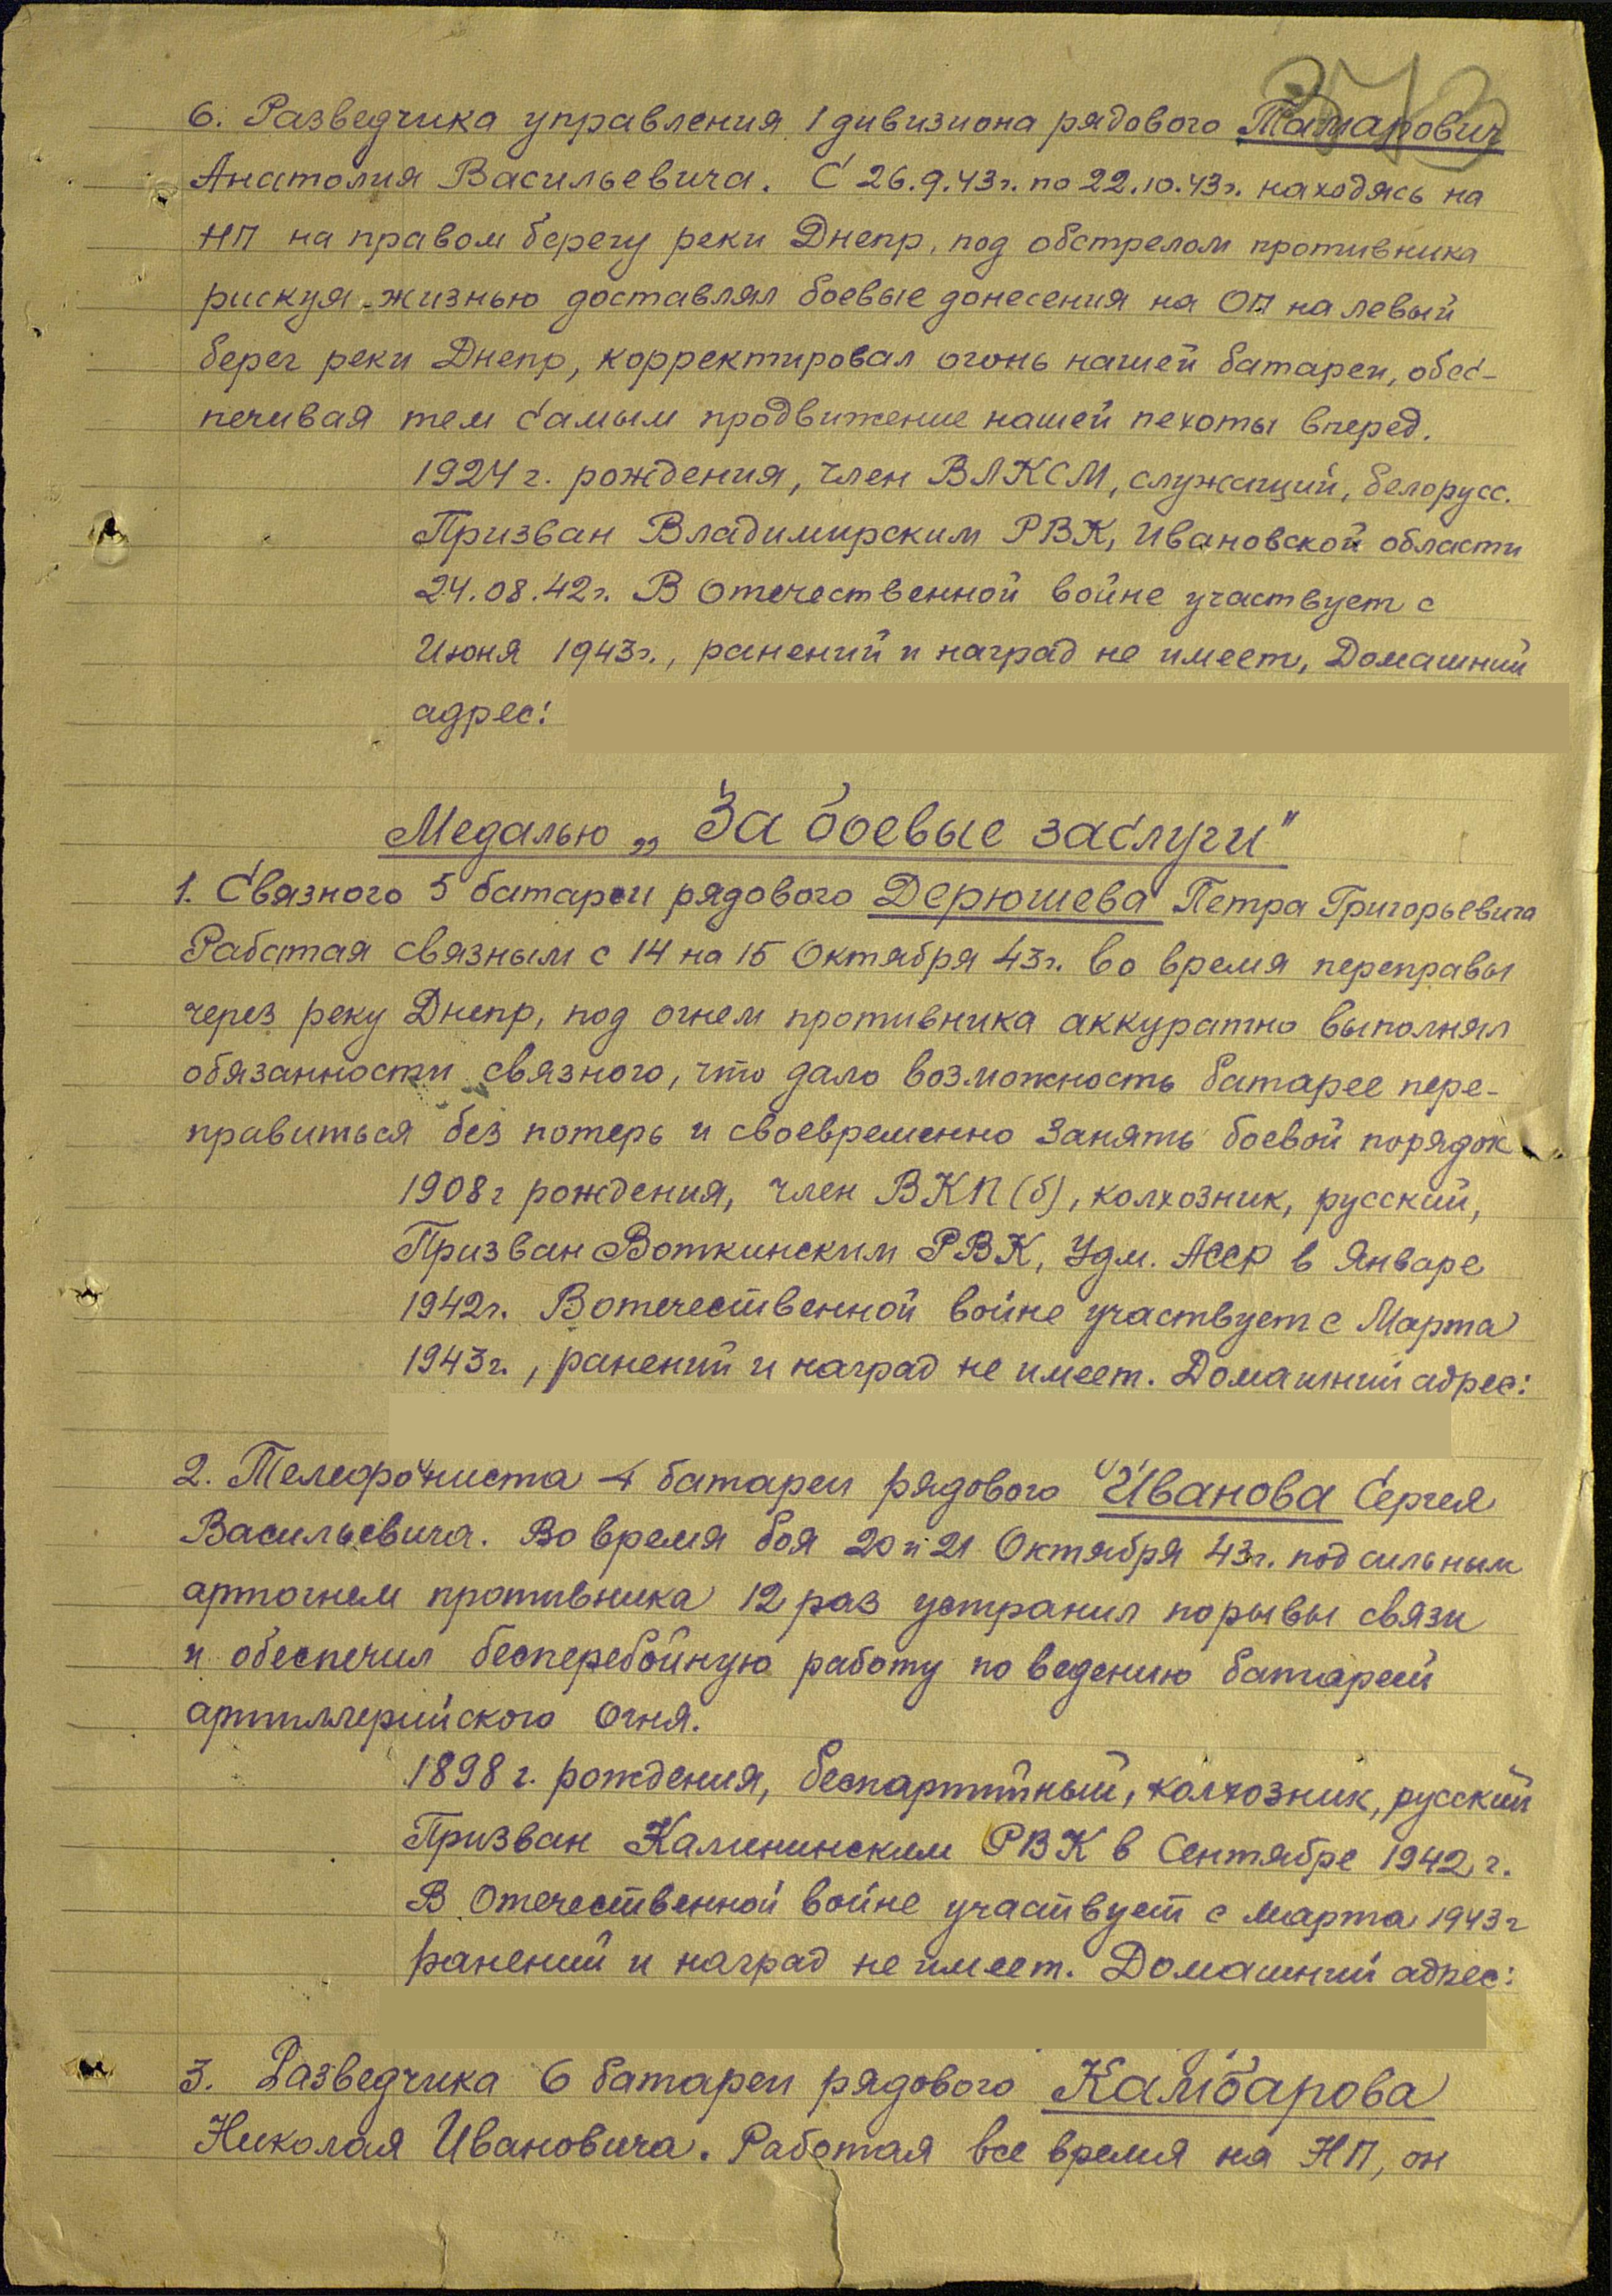 373
6. Разведчика управления 1 дивизиона рядового Татарович
Анатолия Васильевича. С 26.9.43г. по 22.10.43г. находясь на
НП на правом берегу реки Днепр, под обстрелом противника
рискуя жизнью доставлял боевые донесения на ОП на левый
берег реки Днепр, корректировал огонь нашей батареи, обес-
печивая тем самым продвижение нашей пехоты вперед.
1924 г. рождения, член ВЛКСМ, служащий, белорусс.
Призван Владимирским РВК, Ивановской области
24.08.42г. В Отечественной войне участвует с
Июня 1943г., ранений и наград не имеет, Домашний
адрес:
Медалью „За боевые заслуги"
1. Связного 5 батареи рядового Дерюшева Петра Григорьевича
Работая связным с 14 на 15 Октября 43г. во время переправы
через реку Днепр, под огнем противника аккуратно выполнял
обязанности связного, что дало возможность батарее пере-
правиться без потерь и своевременно занять боевой порядок
1908г рождения, член ВКП(б), колхозник, русский,
Призван Воткинским РВК, Удм. АССР в Январе
1942г. В отечественной войне участвует с Марта
1943г., ранений и наград не имеет. Домашний адрес:
2. Телефониста 4 батареи рядового Иванова Сергея
Васильевича. Во время боя 20 и 21 Октября 43г. под сильным
артогнем противника 12 раз устранил порывы связи
и обеспечил бесперебойную работу по ведению батареей
артиллерийского огня.
1898 г. рождения, беспартийный, колхозник, русский
Призван Калининским РВК в Сентябре 1942 г.
В Отечественной войне участвует с марта 1943г
ранений и наград не имеет. Домашний адрес:
3. Разведчика 6 батареи рядового Камбарова
Николая Ивановича. Работая все время на НП, он